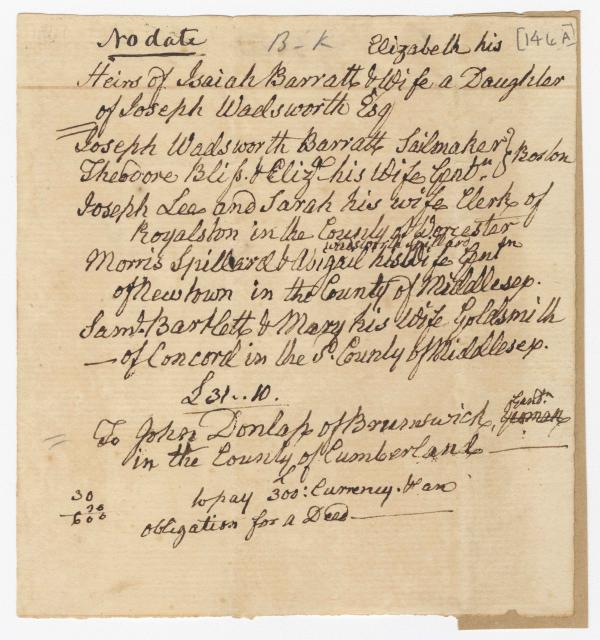 No date B-K Elizabeth his [146A]
Heirs of Isaiah Barratt & Wife a Daughter
of Joseph Wadsworth Esq
Joseph Wadsworth Barratt Sailmaker } Boston
Theodore Bliss & Eliz.a his Wife Gent.n
Joseph Lee and Sarah his wife Clerk of
Royalston in the County of Worcester
Morris Spillard & Abigail his Wife Gent.n
of Newtown in the County of Middlesex.
Sam.l Bartlett & Mary his Wife Goldsmith
— of Concord in the S.d County of Middlesex.
£31..10.
To John Donlap of Brunswick, Gent.n Yeoman
in the County of Cumberland —
30 to pay £300: Currency. & an
20
600 obligation for a Deed —